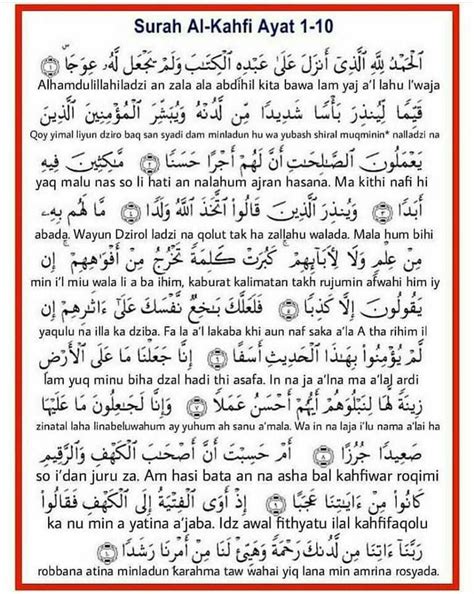 Surah Al-Kahfi Ayat 1-10
ٱلْحَمْدُ لِلَّهِ ٱلَّذِىٓ أَنزَلَ عَلَىٰ عَبْدِهِ ٱلْكِتَٰبَ وَلَمْ يَجْعَل لَّهُۥ عِوَجَاۜ ١
Alhamdulillahiladzi an zala ala abdihil kita bawa lam yaj a'l lahu I'waja
قَيِّمًا لِّيُنذِرَ بَأْسًا شَدِيدًا مِّن لَّدُنْهُ وَيُبَشِّرَ ٱلْمُؤْمِنِينَ ٱلَّذِينَ
Qoy yimal liyun dziro baq san syadi dam minladun hu wa yubash shiral muqminin* nalladzi na
يَعْمَلُونَ ٱلصَّٰلِحَٰتِ أَنَّ لَهُمْ أَجْرًا حَسَنًا ٢ مَّٰكِثِينَ فِيهِ
yaq malu nas so li hati an nalahum ajran hasana. Ma kithi nafi hi
أَبَدًا ٣ وَيُنذِرَ ٱلَّذِينَ قَالُوا۟ ٱتَّخَذَ ٱللَّهُ وَلَدًا ٤ مَّا لَهُم بِهِۦ
abada. Wayun Dzirol ladzi na qolut tak ha zallahu walada. Mala hum bihi
مِنْ عِلْمٍ وَلَا لِـَٔابَآئِهِمْ ۚ كَبُرَتْ كَلِمَةً تَخْرُجُ مِنْ أَفْوَٰهِهِمْ ۚ إِن
min i'l miu wala li a ba ihim, kaburat kalimatan takh rujumin afwahi him iy
يَقُولُونَ إِلَّا كَذِبًا ٥ فَلَعَلَّكَ بَٰخِعٌ نَّفْسَكَ عَلَىٰٓ ءَاثَٰرِهِمْ إِن
yaqulu na illa ka dziba. Fa la a'l lakaba khi aun naf saka a'la A tha rihim il
لَّمْ يُؤْمِنُوا۟ بِهَٰذَا ٱلْحَدِيثِ أَسَفًا ٦ إِنَّا جَعَلْنَا مَا عَلَى ٱلْأَرْضِ
lam yuq minu biha dzal hadi thi asafa. In na ja a'lna ma a'laj ardi
زِينَةً لَّهَا لِنَبْلُوَهُمْ أَيُّهُمْ أَحْسَنُ عَمَلًا ٧ وَإِنَّا لَجَٰعِلُونَ مَا عَلَيْهَا
zinatal laha linabeluwahum ay yuhum ah sanu a'mala. Wa in na laja i'lu nama a'lai ha
صَعِيدًا جُرُزًا ٨ أَمْ حَسِبْتَ أَنَّ أَصْحَٰبَ ٱلْكَهْفِ وَٱلرَّقِيمِ
so i'dan juru za. Am hasi bata an na asha bal kahfiwar roqimi
كَانُوا۟ مِنْ ءَايَٰتِنَا عَجَبًا ٩ إِذْ أَوَى ٱلْفِتْيَةُ إِلَى ٱلْكَهْفِ فَقَالُوا۟
ka nu min a yatina a'jaba. Idz awal fithyatu ilal kahfifaqolu
رَبَّنَآ ءَاتِنَا مِن لَّدُنكَ رَحْمَةً وَهَيِّئْ لَنَا مِنْ أَمْرِنَا رَشَدًا ١٠
robbana atina minladun karahma taw wahai yiq lana min amrina rosyada.